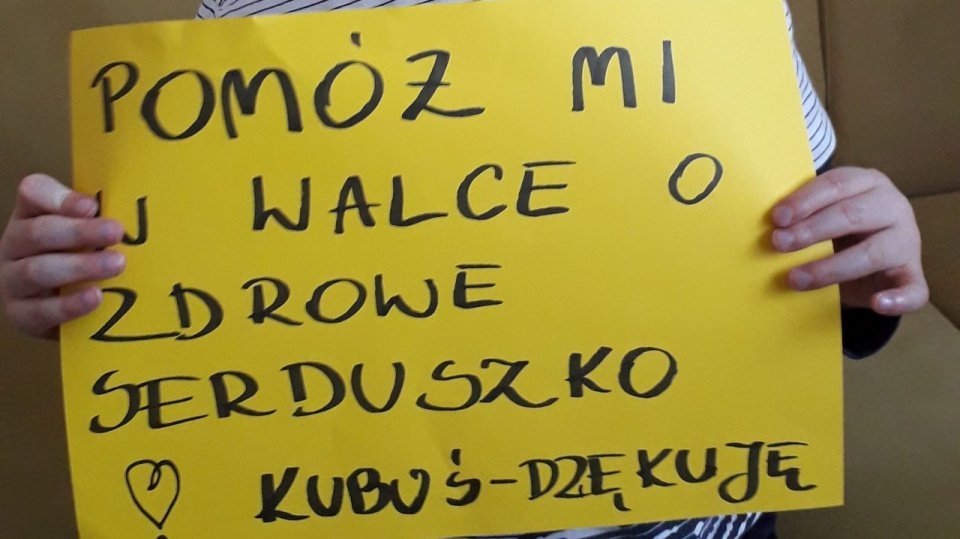 POMÓŻ MI
W WALCE O
ZDROWE
SERDUSZKO
KUBUŚ-DZĘKUJĘ